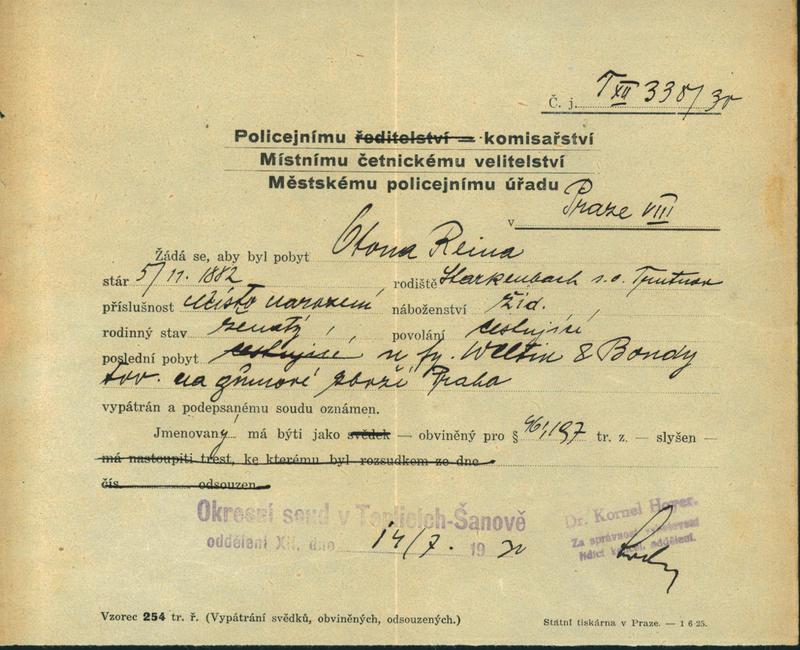 Č. j. T XII 338/30
Policejnímu ředitelství — komisařství
Místnímu četnickému velitelství
Městskému policejnímu úřadu
v Praze VIII
Žádá se, aby byl pobyt Otona Reina
stár 5/11. 1882 rodiště Starkenbach s.o. Trutnov
příslušnost místo narození náboženství žid.
rodinný stav ženatý povolání cestující
poslední pobyt cestující u fy. Weltin & Bondy
tov. na gumové zboží Praha
vypátrán a podepsanému soudu oznámen.
Jmenovaný má býti jako svědek — obviněný pro § 197 tr. z. — slyšen —
má nastoupiti trest, ke kterému byl rozsudkem ze dne
čís. odsouzen
Okresní soud v Teplicích-Šanově
oddělení XII. dne 14/7. 1930
Dr. Kornel Hoyer.
Za správnost vyhotovení
řídící kancel. oddělení.
Vzorec 254 tr. ř. (Vypátrání svědků, obviněných, odsouzených.)
Státní tiskárna v Praze. — 1 6-25.